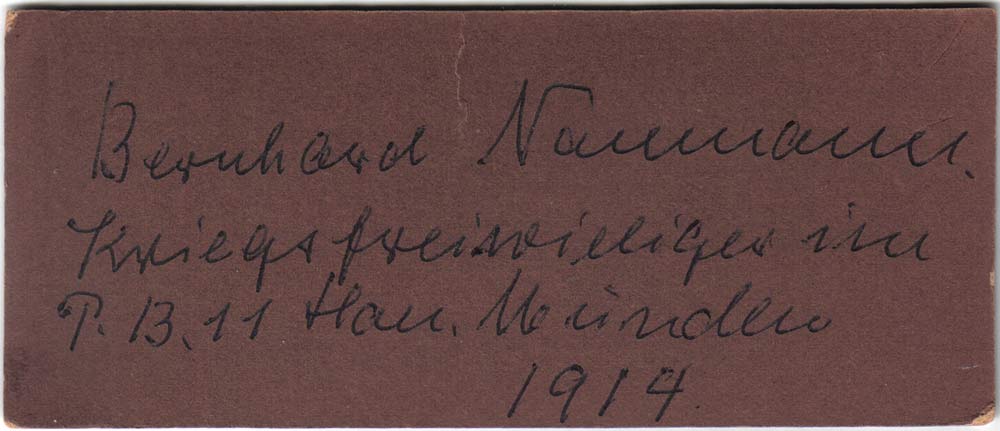 Bernhard Naumann.
Kriegsfreiwilliger im
P. B. 11 Han. Münden
1914.